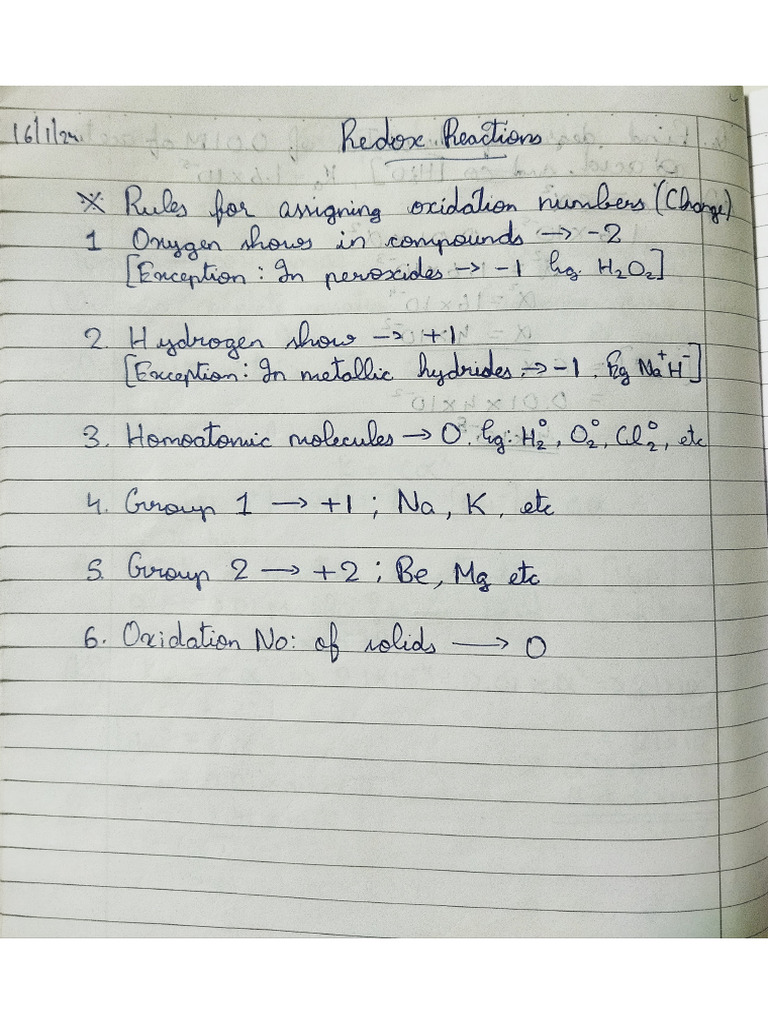 16/1/24
Redox Reactions
※ Rules for assigning oxidation numbers (Charge)
1 Oxygen shows in compounds → -2
[Exception : In peroxides → -1 Eg. H₂O₂]
2. Hydrogen show → +1
[Exception : In metallic hydrides, → -1, Eg Na⁺H⁻]
3. Homoatomic molecules → 0. Eg: H₂⁰, O₂⁰, Cl₂⁰, etc
4. Group 1 → +1 ; Na, K, etc
5. Group 2 → +2 ; Be, Mg etc
6. Oxidation No: of solids → 0